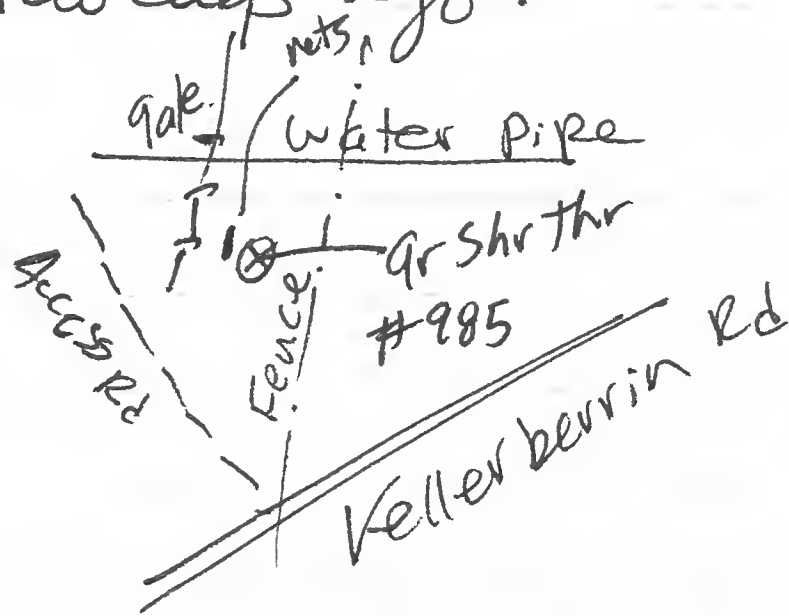 days ago.
nets
gate.
water pipe
gr shr thr
#985
Access Rd
Fence
Kellerberrin Rd